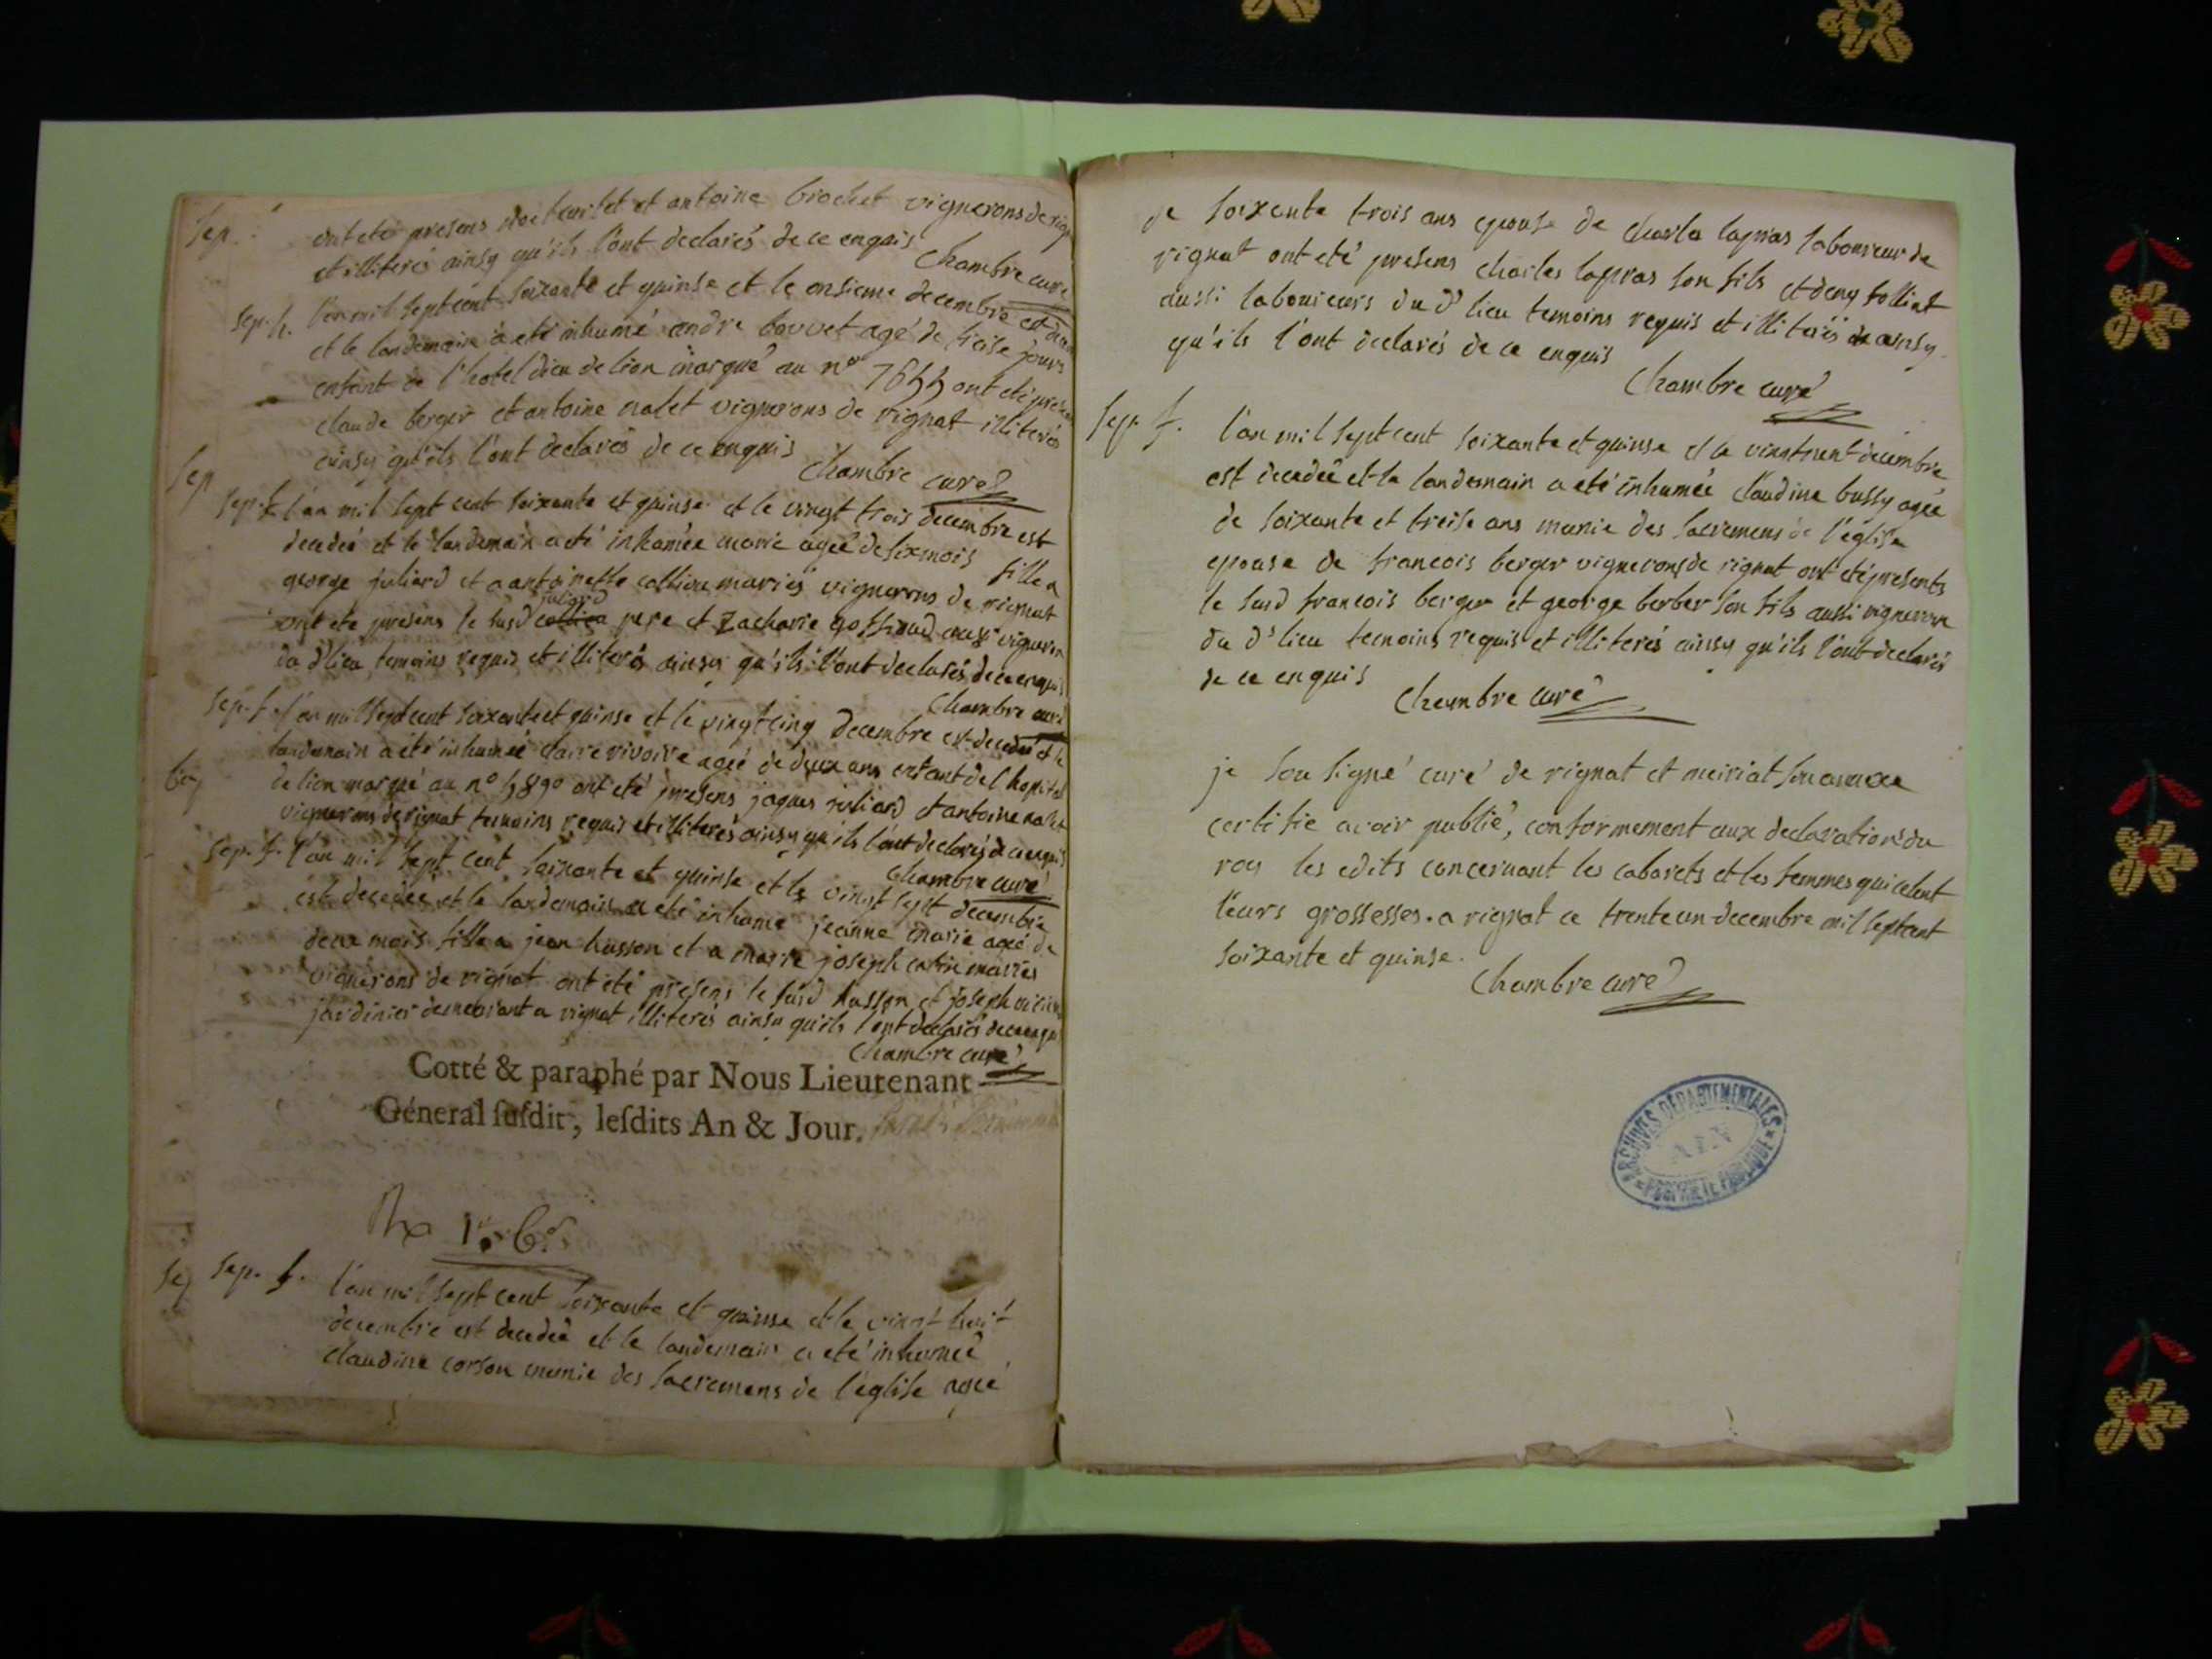 Sep.
ont eté presens et antoine brochet vignerons de
et illiterés ainsy qu'ils l'ont declarés de ce enquis
Chambre curé
Sep. h. l'an mil sept cent soixante et quinse et le onsieme decembre est
et le landemain a eté inhumé andre bouvet agé de treise jours
enfant de l'hotel dieu de lion marqué au n° ont eté
claude berger et antoine nalet vignerons de rignat illiterés
ainsy qu'ils l'ont declarés de ce enquis
Chambre curé
Sep
Sep. f. l'an mil sept cent soixante et quinse et le vingt trois decembre est
decedeé et le landemain a eté inhumée marie ageé de six mois fille a
george juliard et a antoinette mariés vignerons de rignat
juliard
ont eté presens le susd pere et Zacharie aussi vigneron
du d lieu temoins requis et illiterés ainsy qu'ils l'ont declarés de ce enquis
Chambre curé
Sep. f. l'an mil sept cent soixante et quinse et le vingt cinq decembre est decedeé et le
landemain a eté inhumeé claire rivoire ageé de deux ans enfant de l'hopital
de lion marqué au n° ont eté presens jaques juliard et antoine nalet
vignerons de rignat temoins requis et illiterés ainsy qu'ils l'ont declarés de ce enquis
Chambre curé
Sep. f. l'an mil sept cent soixante et quinse et le vingt sept decembre
est decedeé et le landemain a eté inhumé jeanne marie ageé de
deux mois fille a jean husson et a marie joseph mariés
vignerons de rignat ont eté presens le susd husson et joseph
jardinier demeurant a rignat illiterés ainsy qu'ils l'ont declarés de ce enquis
Chambre curé
Cotté & paraphé par Nous Lieutenant
Géneral ſuſdit, leſdits An & Jour.
Sep. f. l'an mil sept cent soixante et quinse et le vingt huit
decembre est decedeé et le landemain a eté inhumeé
claudine corson munie des sacremens de l'église ageé
de soixante trois ans epouse de charle lapras laboureur de
rignat ont eté presens charles lapras son fils et deny folliet
aussi laboureurs du d lieu temoins requis et illiterés ainsy
qu'ils l'ont declarés de ce enquis
Chambre curé
Sep. f. l'an mil sept cent soixante et quinse et le vingt decembre
est decedeé et le landemain a eté inhumeé claudine bussy ageé
de soixante et treise ans munie des sacremens de l'église
epouse de francois berger vignerons de rignat ont eté presents
le susd francois berger et george berber son fils aussi vigneron
du d lieu temoins requis et illiterés ainsy qu'ils l'ont declarés
de ce enquis
Chambre curé
je sousigné curé de rignat et meiriat son annexe
certifie avoir publié, conformement aux declarations du
roy les edits concernant les cabarets et les femmes qui celent
leurs grossesses. a rignat ce trente un decembre mil septcent
soixante et quinse.
Chambre curé
ARCHIVES DÉPARTEMENTALES
AIN
PROPRIÉTÉ PUBLIQUE